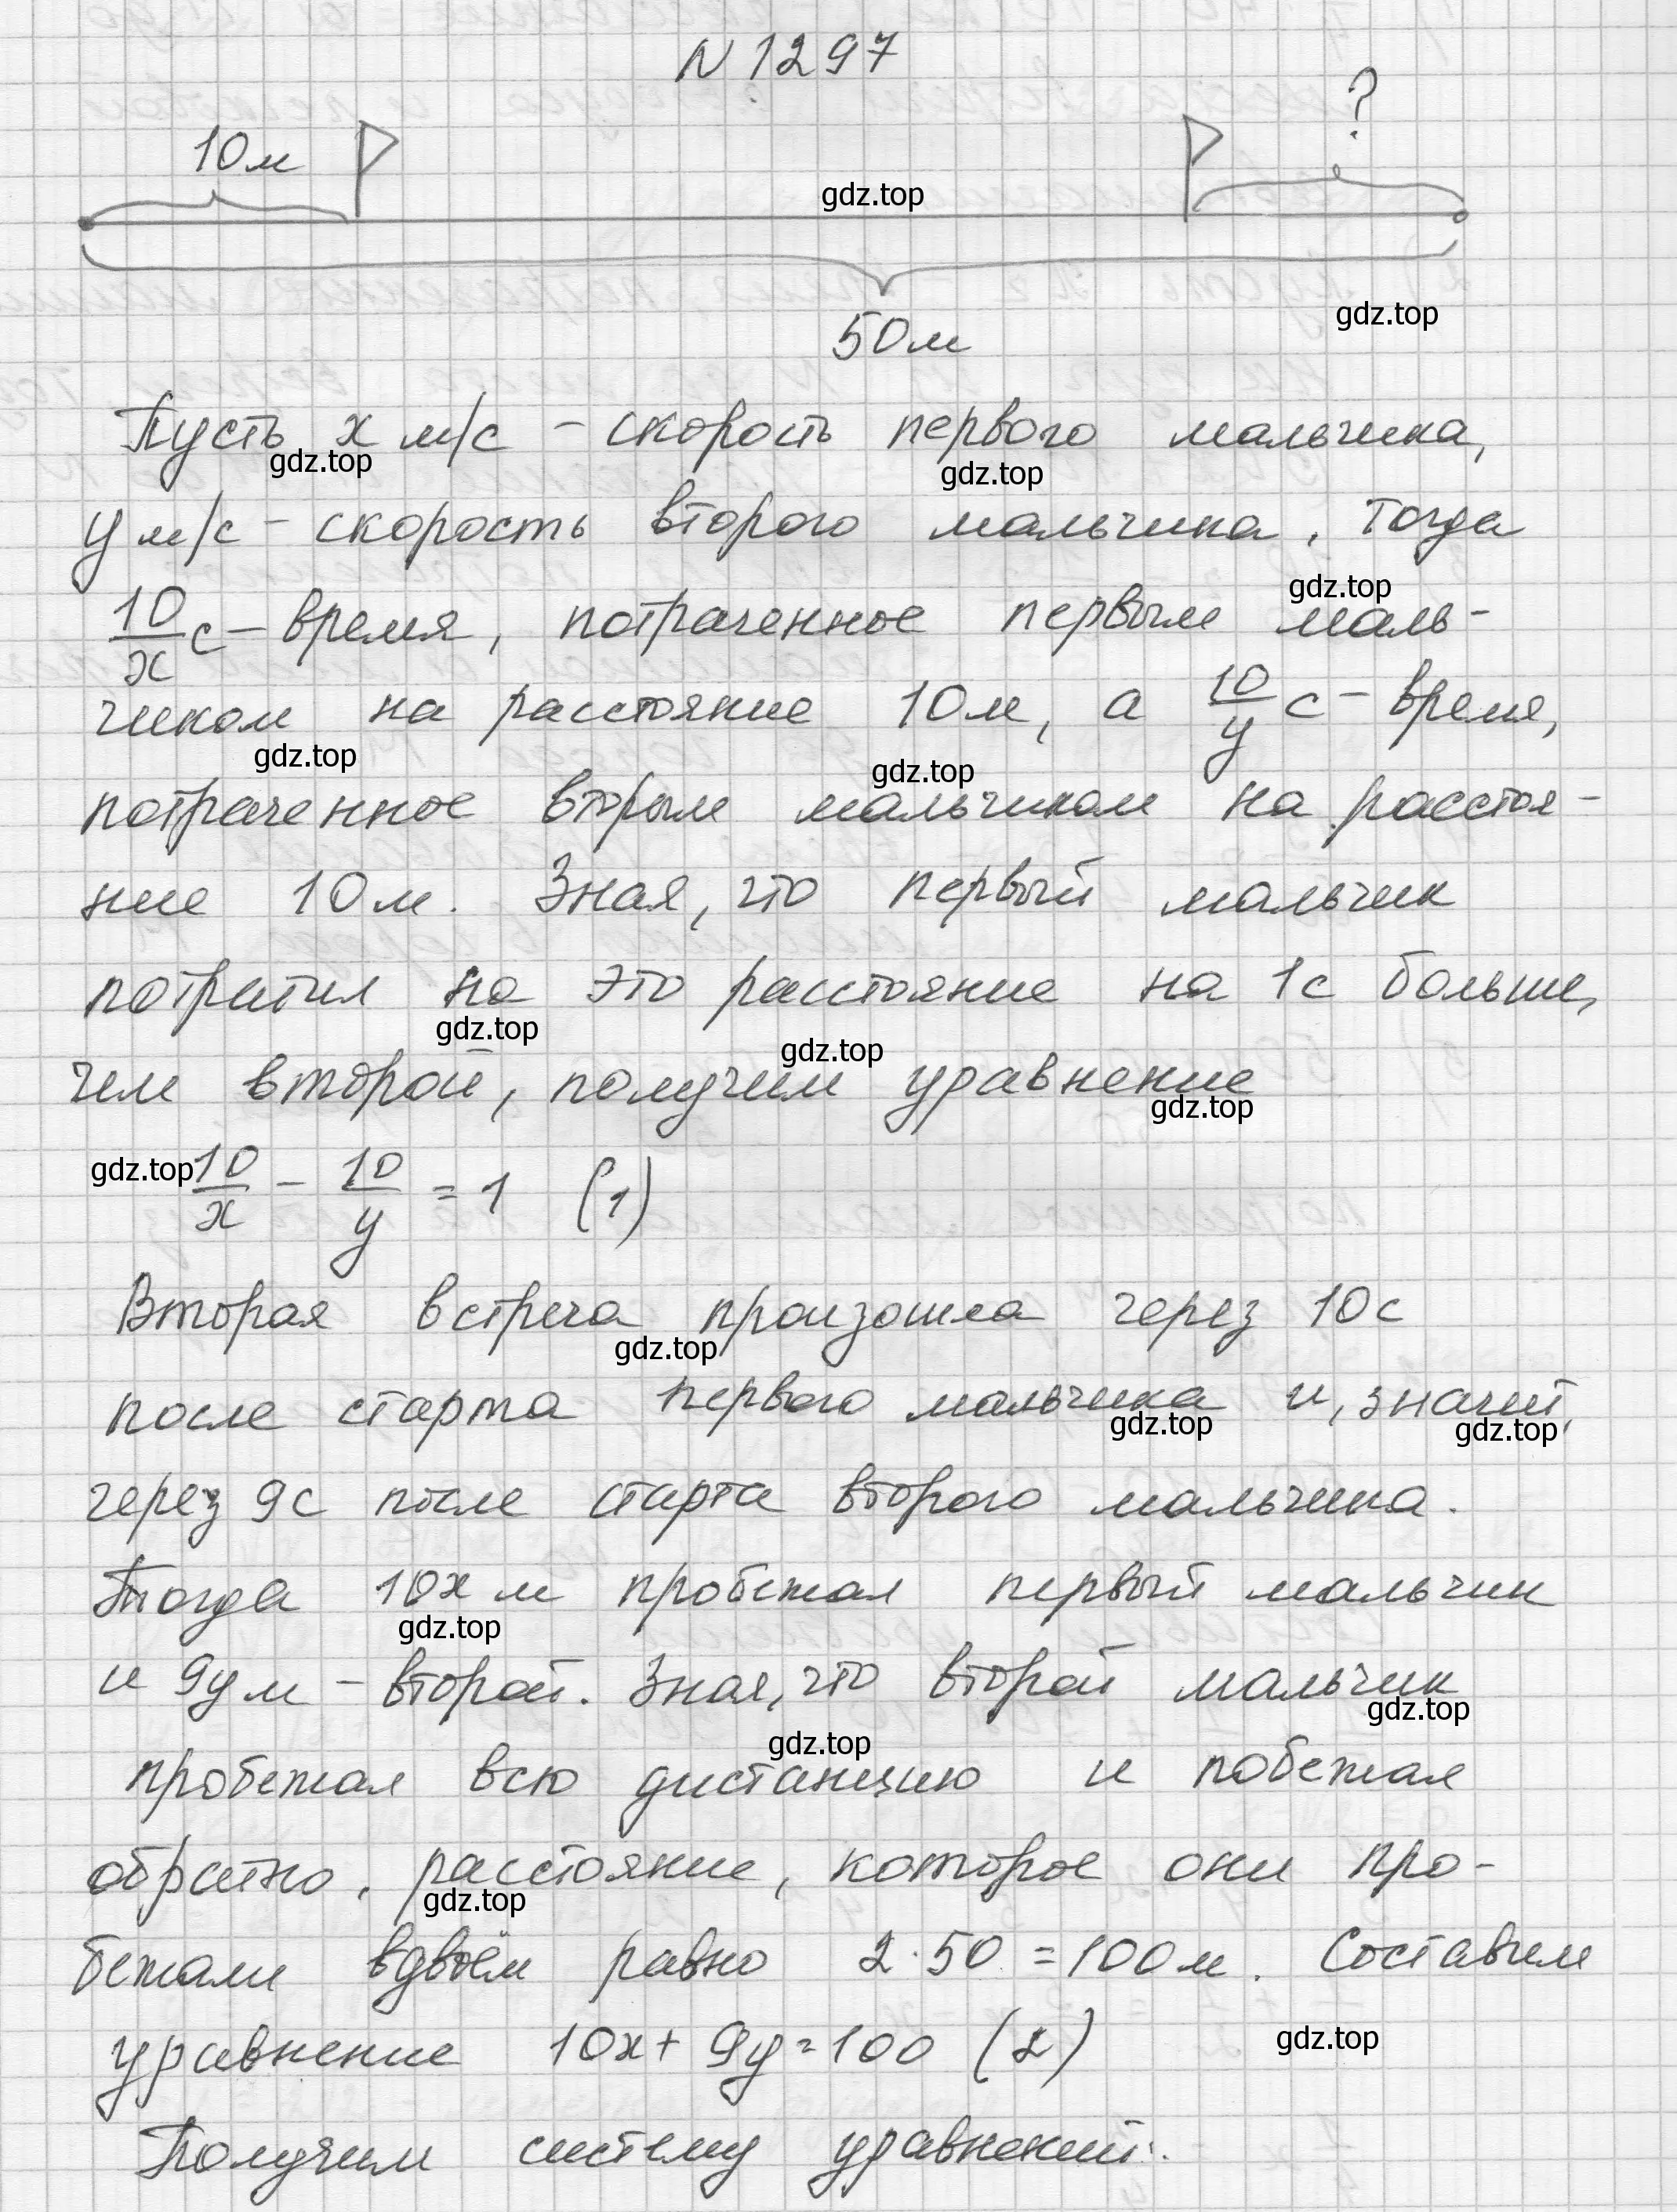 N 1297
?
10м
gdz.top
gdz.top
50м
Пусть x м/с – скорость первого мальчика,
gdz.top gdz.top
y м/с – скорость второго мальчика, тогда
gdz.top
10/x с – время, потраченное первым маль-
чиком на расстояние 10м, а 10/y с – время,
gdz.top gdz.top
потраченное вторым мальчиком на расстоя-
ние 10м. Зная, что первый мальчик
потратил на это расстояние на 1с больше,
gdz.top gdz.top
чем второй, получим уравнение
gdz.top
gdz.top 10/x – 10/y = 1 (1)
Вторая встреча произошла через 10с
gdz.top
после старта первого мальчика и, значит,
gdz.top gdz.top
через 9с после старта второго мальчика.
Тогда 10x м пробежал первый мальчик
gdz.top
и 9y м – второй. Зная, что второй мальчик
gdz.top gdz.top
пробежал всю дистанцию и побежал
обратно, расстояние, которое они про-
gdz.top
бежали вдвоём равно 2·50 = 100м. Составим
уравнение 10x + 9y = 100 (2)
gdz.top
Получим систему уравнений: